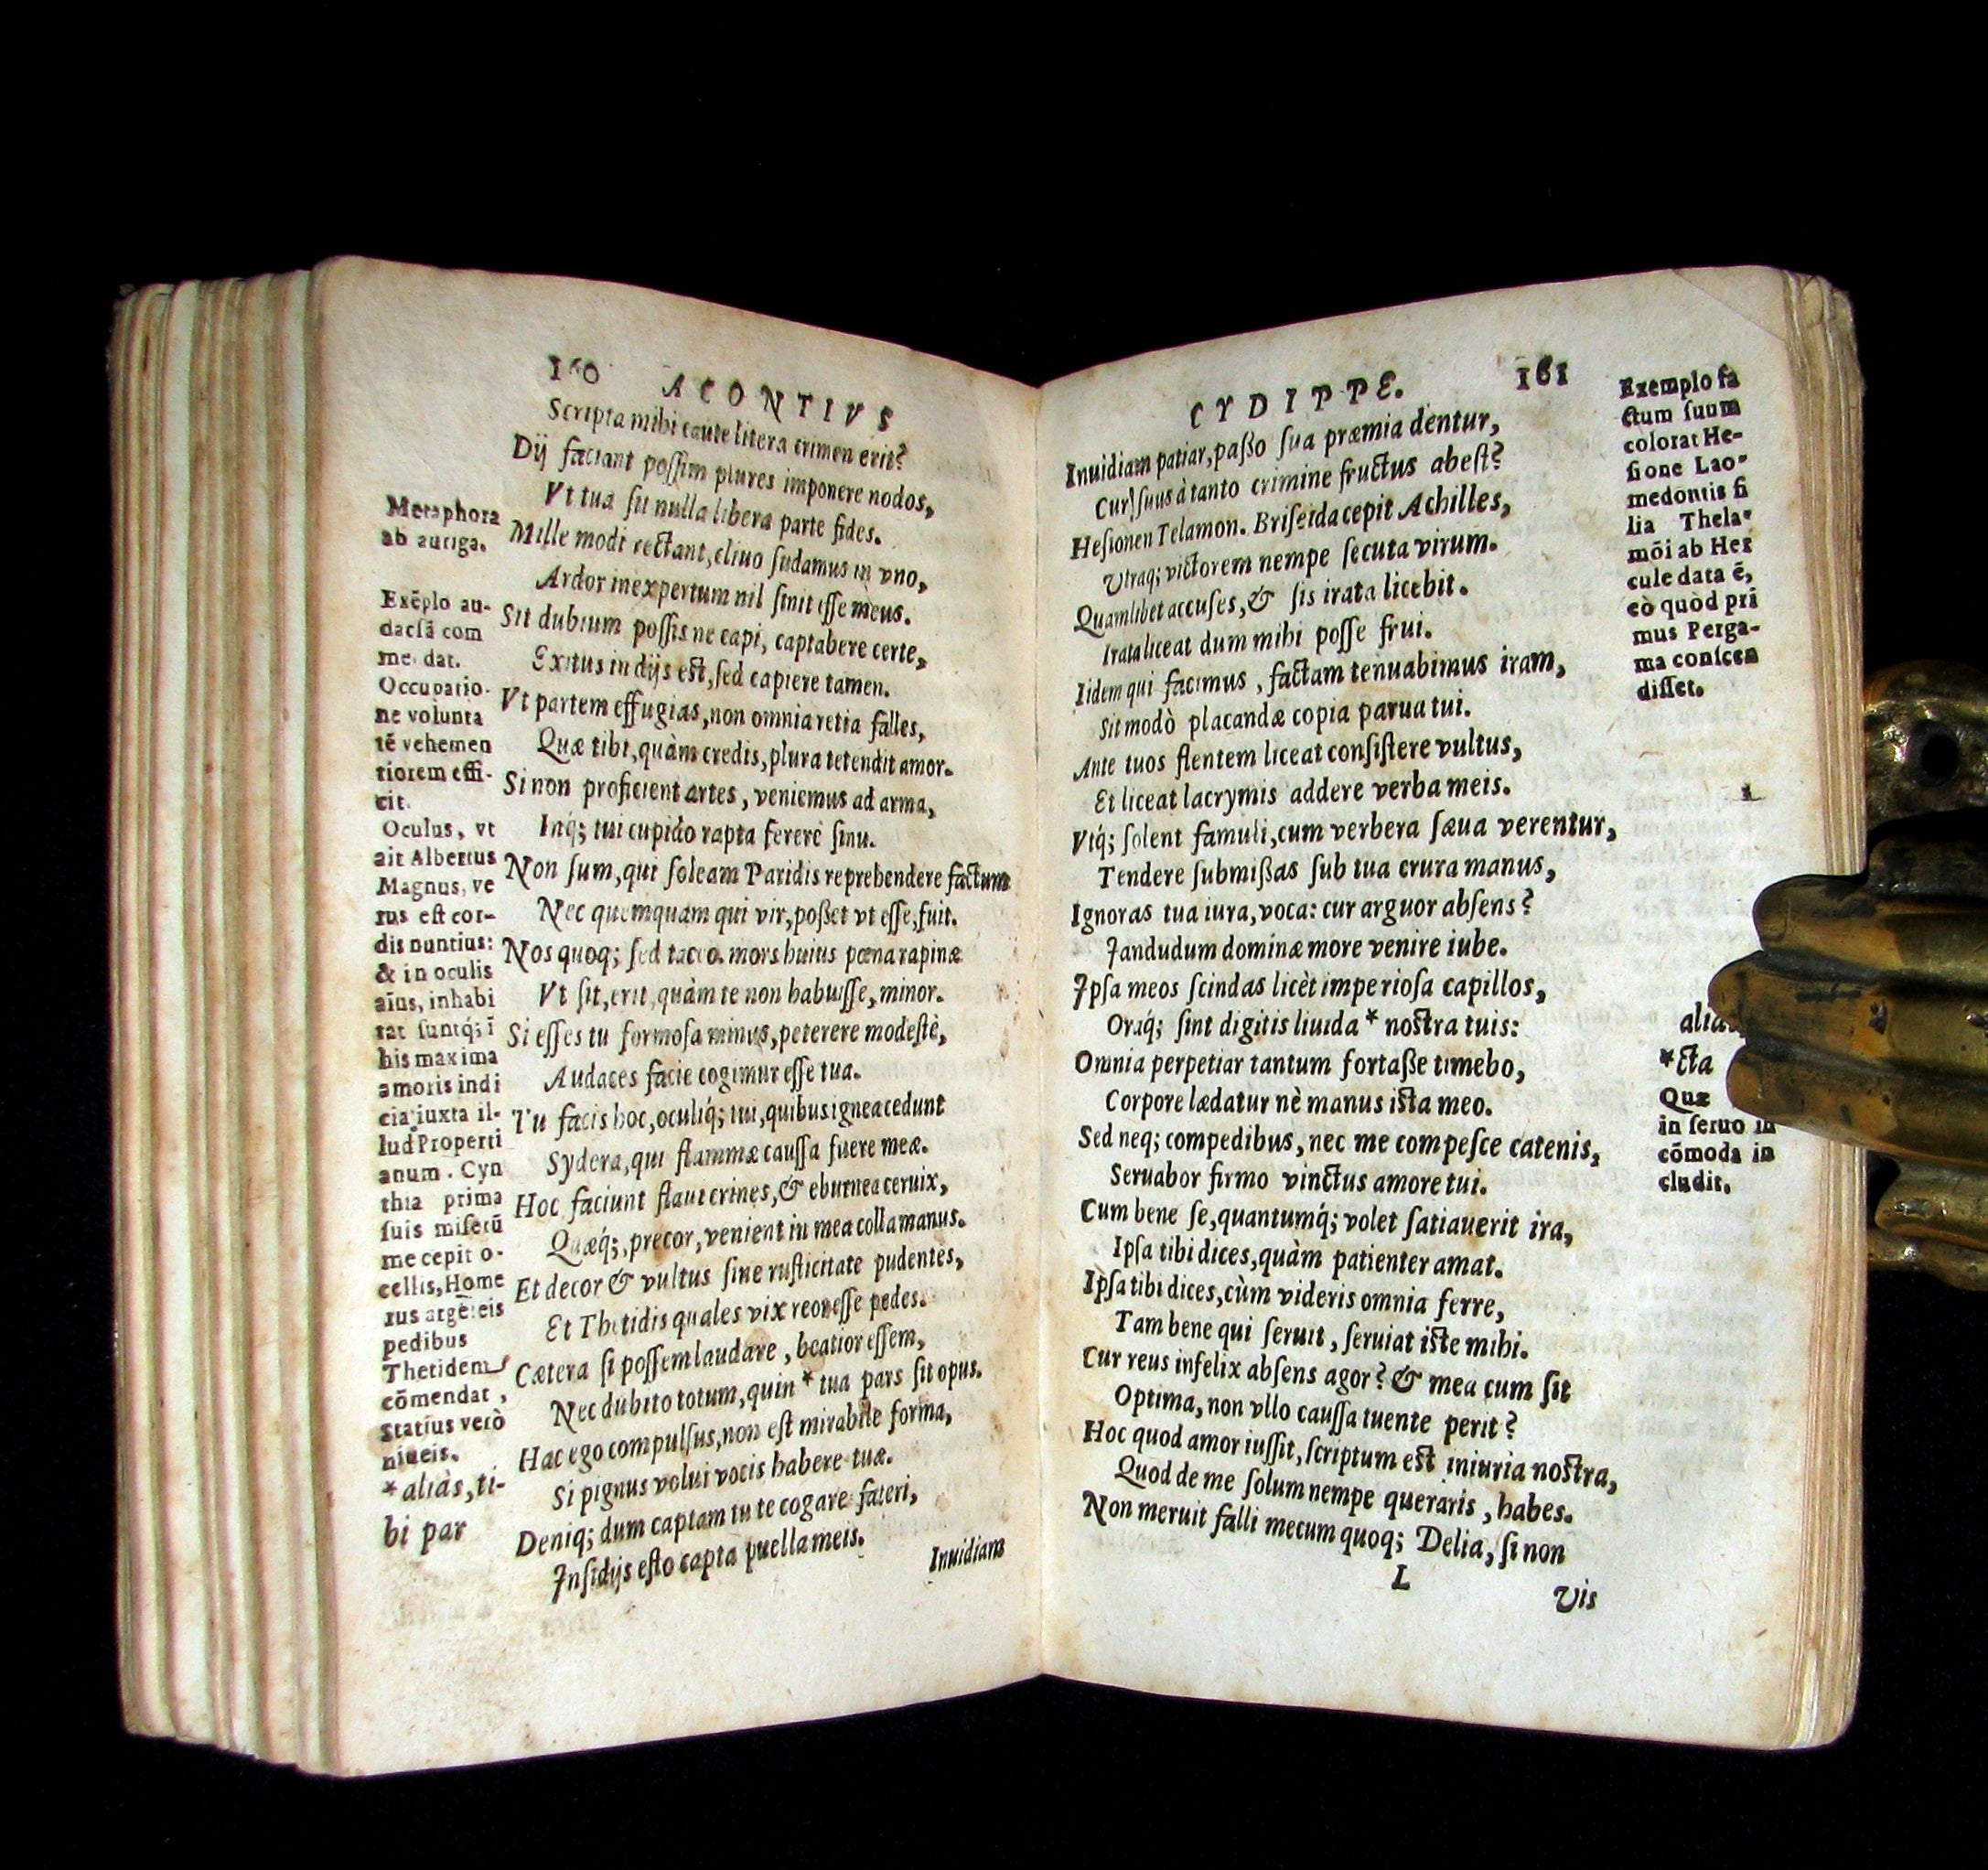 160 ACONTIVS
Scripta mihi caute litera crimen erit?
Dij faciant possim plures imponere nodos,
Vt tua sit nulla libera parte fides.
Mille modi rectant, cliuo sudamus in vno,
Ardor inexpertum nil sinit esse meus.
Sit dubium possis ne capi, captabere certe,
Exitus in dijs est, sed capiere tamen.
Vt partem effugias, non omnia retia falles,
Quæ tibi, quàm credis, plura tetendit amor.
Si non proficient artes, veniemus ad arma,
Inq́; tui cupido rapta ferere sinu.
Non sum, qui soleam Paridis reprehendere factum
Nec quemquam qui vir, poßet vt esse, fuit.
Nos quoq; sed taceo. mors huius pœna rapinæ
Vt sit, erit, quàm te non habuisse, minor.
Si esses tu formosa minus, peterere modestè,
Audaces facie cogimur esse tua.
Tu facis hoc, oculiq́; tui, quibus ignea cedunt
Sydera, qui flammæ caussa fuere meæ.
Hoc faciunt flaui crines, & eburnea ceruix,
Quæq́;, precor, venient in mea colla manus.
Et decor & vultus sine rusticitate pudentes,
Et Thetidis quales vix reor esse pedes.
Cætera si possem laudare, beatior essem,
Nec dubito totum, quin * tua pars sit opus.
Hac ego compulsus, non est mirabile forma,
Si pignus volui vocis habere tuæ.
Deniq; dum captam tu te cogare fateri,
Insidijs esto capta puella meis.
Inuidiam
Metaphora
ab auriga.
Exẽplo au-
daciã com
me dat.
Occupatio-
ne volunta
tẽ vehemen
tiorem effi-
cit.
Oculus, vt
ait Albertus
Magnus, ve
rus est cor-
dis nuntius:
& in oculis
aĩus, inhabi
tat suntq́; ĩ
his maxima
amoris indi
cia iuxta il-
lud Properti
anum. Cyn
thia prima
suis miserũ
me cepit o-
cellis, Home
rus argẽteis
pedibus
Thetidem
cõmendat,
Statius verò
niueis.
* aliàs, ti-
bi par
CYDIPPE. 161
Inuidiam patiar, paßo sua præmia dentur,
Cur suus à tanto crimine fructus abest?
Hesionen Telamon. Briseida cepit Achilles,
Vtraq; victorem nempe secuta virum.
Quamlibet accuses, & sis irata licebit.
Irata liceat dum mihi posse frui.
Iidem qui facimus, factam tenuabimus iram,
Sit modò placandæ copia parua tui.
Ante tuos flentem liceat consistere vultus,
Et liceat lacrymis addere verba meis.
Vtq́; solent famuli, cum verbera sæua verentur,
Tendere submißas sub tua crura manus,
Ignoras tua iura, voca: cur arguor absens?
Jandudum dominæ more venire iube.
Ipsa meos scindas licèt imperiosa capillos,
Oraq́; sint digitis liuida * nostra tuis:
Omnia perpetiar tantum fortaße timebo,
Corpore lædatur nè manus ista meo.
Sed neq; compedibus, nec me compesce catenis,
Seruabor firmo vinctus amore tui.
Cum bene se, quantumq́; volet satiauerit ira,
Ipsa tibi dices, quàm patienter amat.
Ipsa tibi dices, cùm videris omnia ferre,
Tam bene qui seruit, seruiat iste mihi.
Cur reus infelix absens agor? & mea cum sit
Optima, non vllo caussa tuente perit?
Hoc quod amor iussit, scriptum est iniuria nostra,
Quod de me solum nempe queraris, habes.
Non meruit falli mecum quoq; Delia, si non
L
Vis
Exemplo fa
ctum suum
colorat He-
sione Lao-
medontis fi
lia Thela-
mõi ab Her
cule data ẽ,
eò quòd pri
mus Perga-
ma conscen
disset.
*cta
Quæ
in seruo in
cõmoda in
cludit.